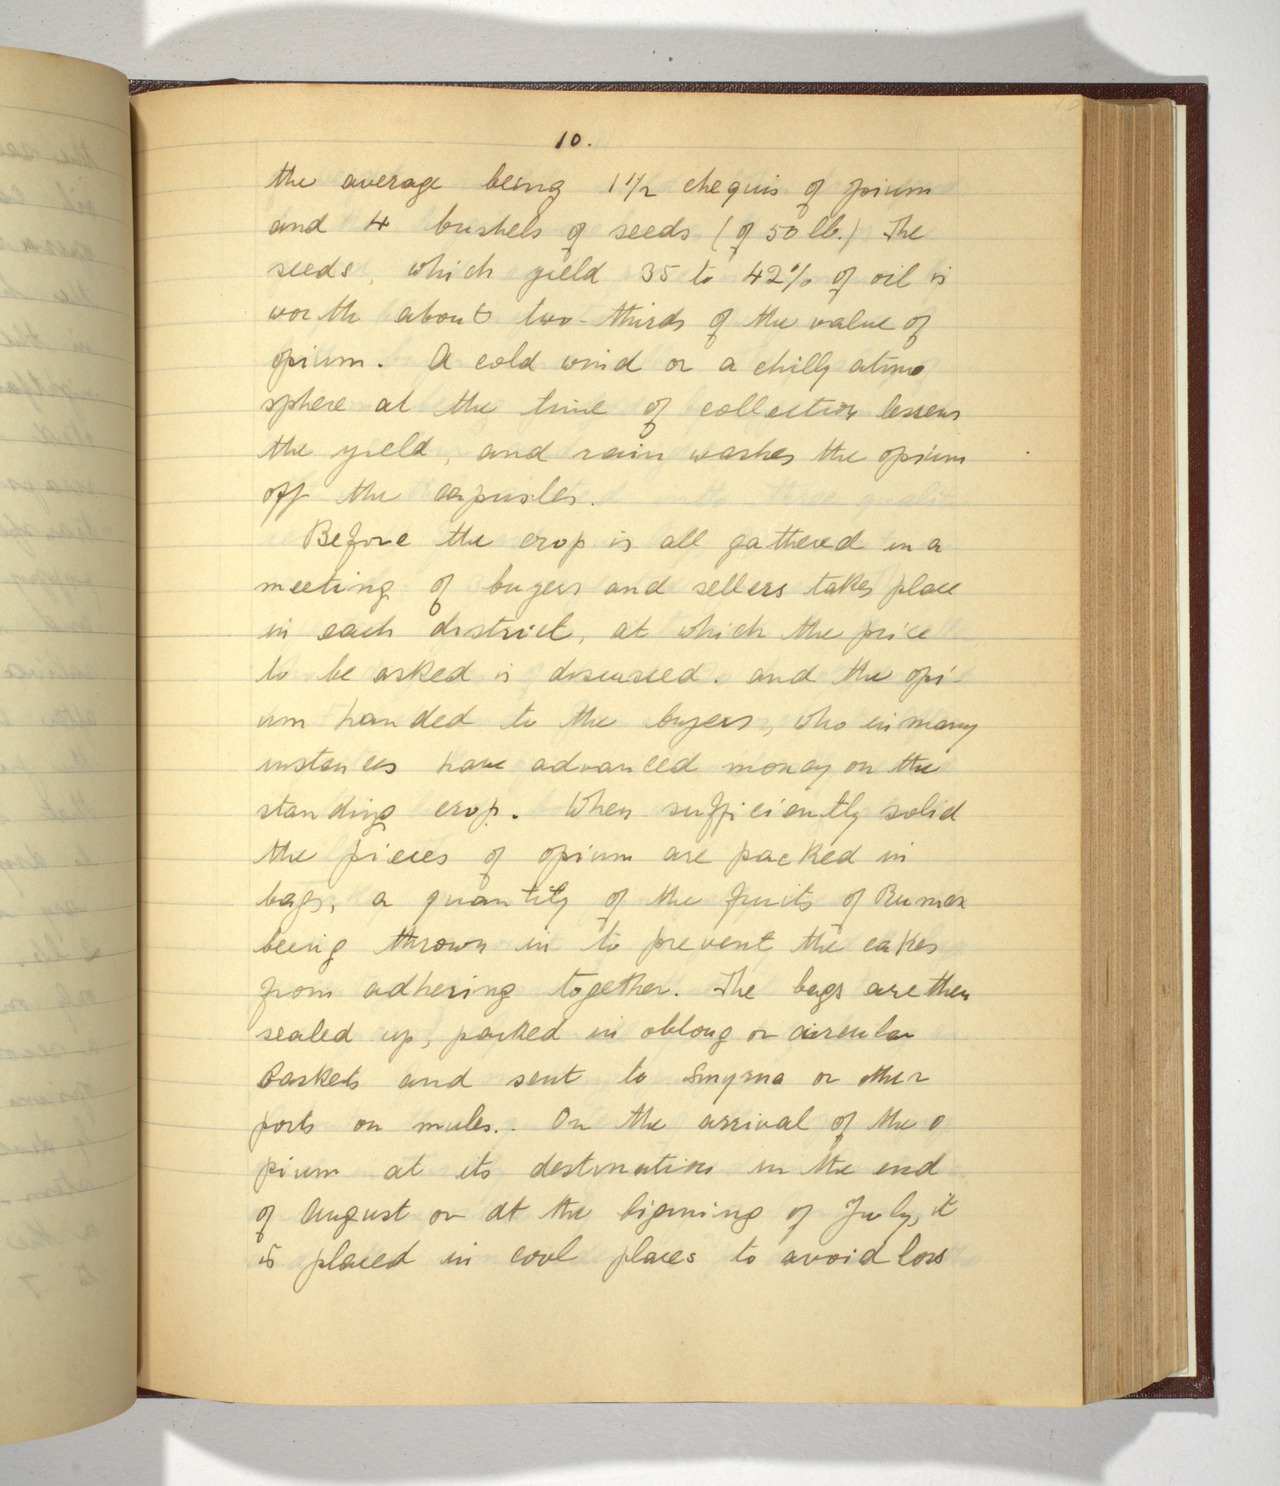 10.
the average being 1 1/2 chequis of opium
and 4 bushels of seeds (of 50 lb.) The
seeds, which yield 35 to 42% of oil is
worth about two-thirds of the value of
opium. A cold wind or a chilly atmo
sphere at the time of collection lessens
the yield, and rain washes the opium
off the capusles.
Before the crop is all gathered in a
meeting of buyers and sellers takes place
in each district, at which the price
to be asked is discussed. and the opi-
um handed to the buyers, who in many
instances have advanced money on the
standing crop. When sufficiently solid
the pieces of opium are packed in
bags, a quantity of the fruits of Rumex
being thrown in to prevent the cakes
from adhering together. The bags are then
sealed up, packed in oblong or circular
baskets and sent to Smyrna or other
ports on mules. On the arrival of the o
pium at its destination in the end
of August or at the bigining of July, it
is placed in cool places to avoid loss